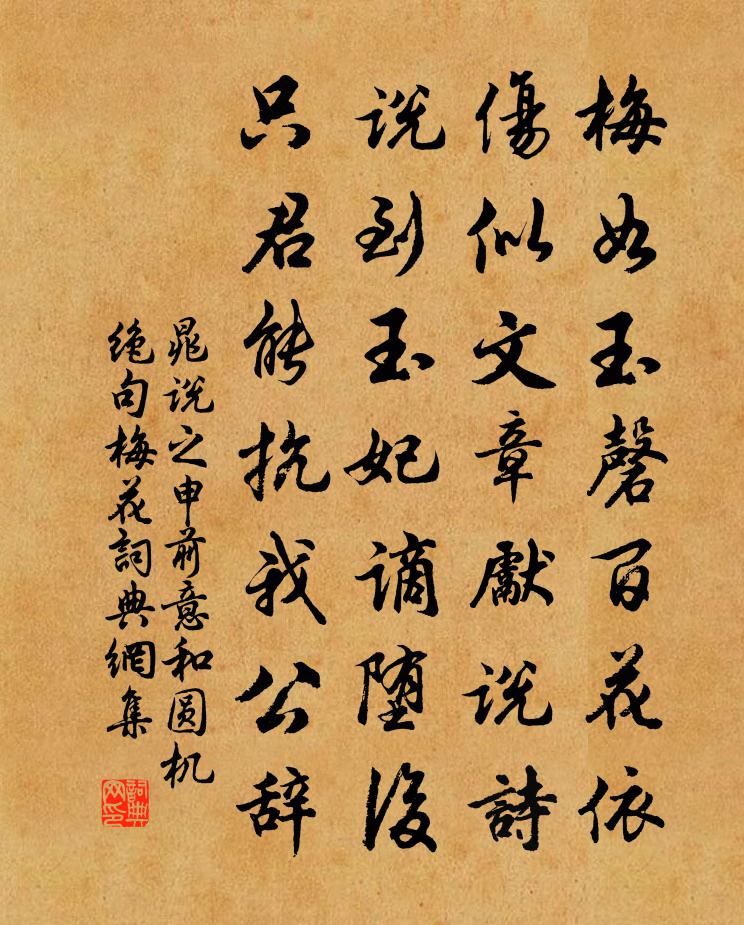 梅如玉磬百花依
傷似文章獻說詩
說到玉妃謫堕後
只君能抗我公辞
晁说之申前意和圆机
绝句梅花詞典網集
詞典网印